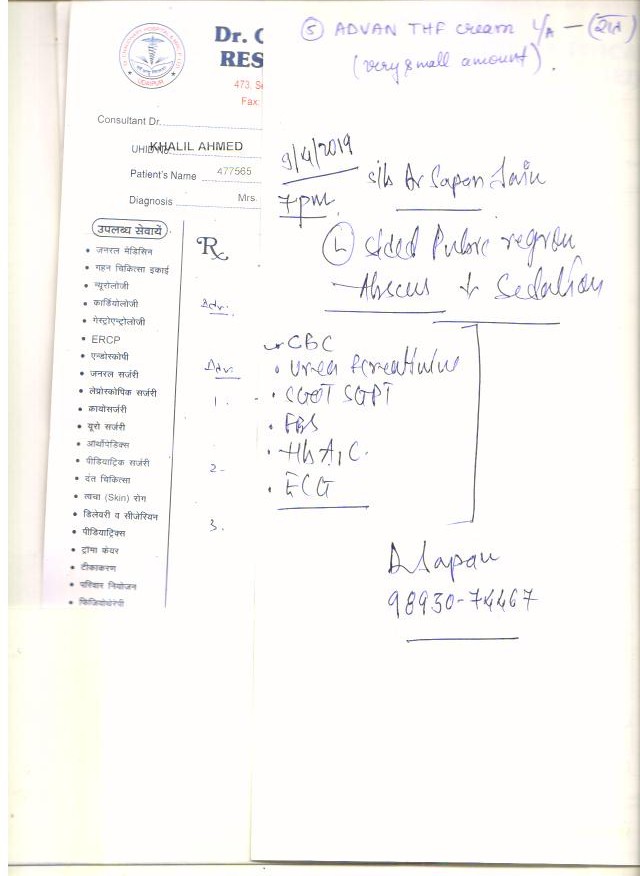 Dr.
RES
473,
Fax:
Consultant Dr.
UHID No
KHALIL AHMED
Patient's Name 477565
Diagnosis Mrs.
उपलब्ध सेवायें
• जनरल मेडिसिन
• गहन चिकित्सा इकाई
• न्यूरोलॉजी
• कार्डियोलॉजी
• गेस्ट्रोएन्ट्रोलॉजी
• ERCP
• एन्डोस्कोपी
• जनरल सर्जरी
• लेप्रोस्कोपिक सर्जरी
• क्रायोसर्जरी
• यूरो सर्जरी
• ऑर्थोपेडिक्स
• पीडियाट्रिक सर्जरी
• दंत चिकित्सा
• त्वचा (Skin) रोग
• डिलेवरी व सीजेरियन
• पीडियाट्रिक्स
• ट्रॉमा केयर
• टीकाकरण
• परिवार नियोजन
• फिजियोथेरेपी
Rx
Adv.
Adv.
1.
2-
3.
⑤ ADVAN THF cream L/A – (रात)
(very small amount).
9/4/2019
7pm
s/b Dr Sapan Jain
Ⓛ sided Pubic region
Abscess
Sedation
CBC
• Urea & creatinine
• SGOT SGPT
• FBS
• Hb A1C.
• ECG
Dr Sapan
98930-74467